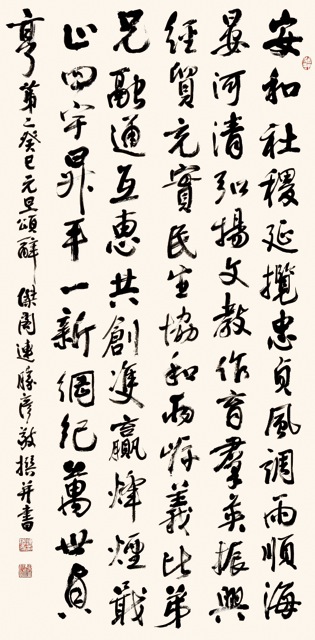 安和社稷延攬忠貞風調雨順海
晏河清弘揚文教作育羣英振興
經貿充實民生協和兩岸義比弟
兄融通互惠共創雙贏烽煙戢
止四宇昇平一新綱紀萬世貞
亨 第二癸巳元旦頌辭 傑閣連勝彥敬撰并書